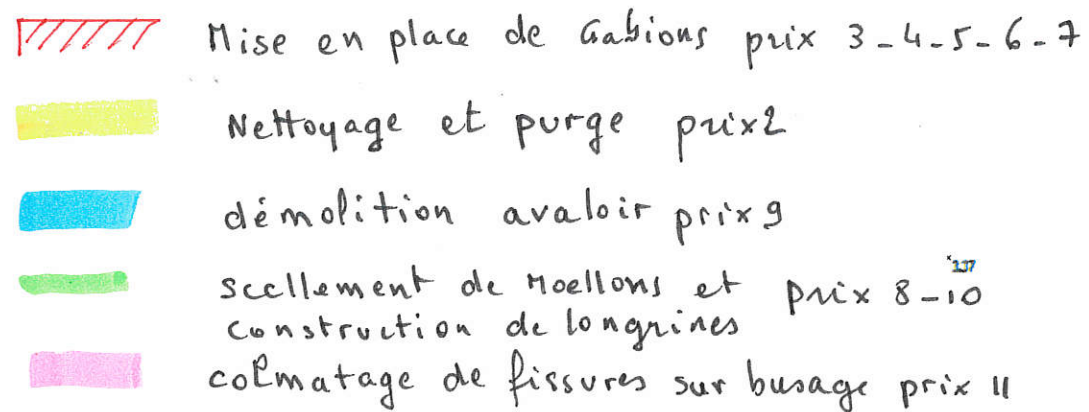 Mise en place de Gabions prix 3-4-5-6-7
Nettoyage et purge prix 2
démolition avaloir prix 9
scellement de Moellons et prix 8-10
x 137
construction de longrines
colmatage de fissures sur busage prix 11